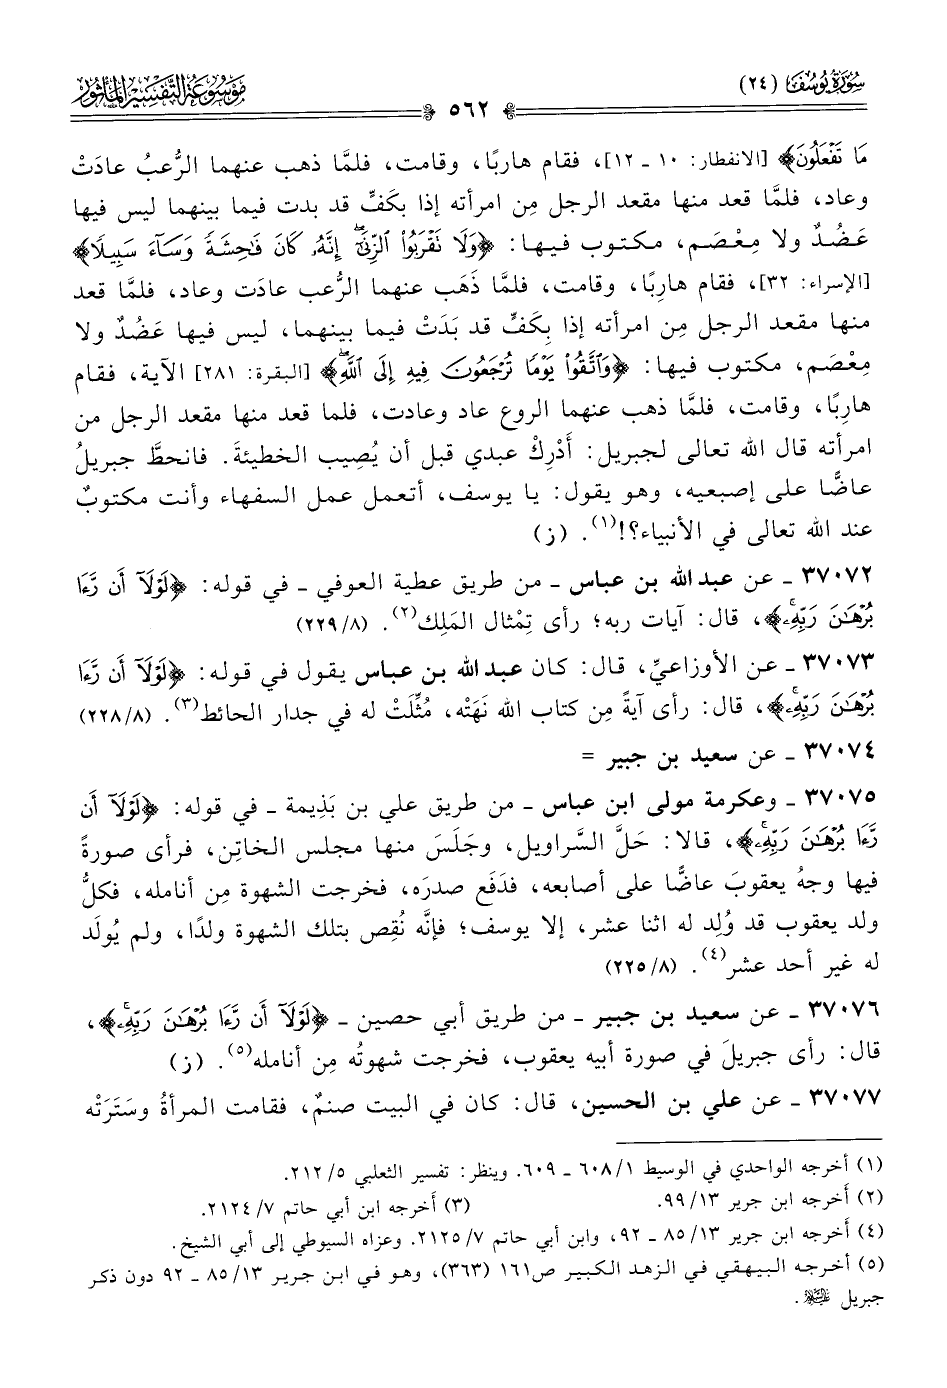 سُورَةُ يُوسُفَ (٢٤)
٥٦٢
مَوْسُوعَةُ التَّفْسِيرِ المَأْثُورِ
مَا تَفْعَلُونَ﴾ [الانفطار: ١٠ ـ ١٢]، فقام هاربًا، وقامت، فلمَّا ذهب عنهما الرُّعبُ عادَتْ
وعاد، فلمَّا قعد منها مقعد الرجل مِن امرأته إذا بكَفٍّ قد بدت فيما بينهما ليس فيها
عَضُدٌ ولا مِعْصَم، مكتوب فيها: ﴿وَلَا نَقْرَبُواْ ٱلزِّنَىٰٓۖ إِنَّهُۥ كَانَ فَٰحِشَةً وَسَآءَ سَبِيلًا﴾
[الإسراء: ٣٢]، فقام هاربًا، وقامت، فلمَّا ذَهَب عنهما الرُّعب عادَت وعاد، فلمَّا قعد
منها مقعد الرجل مِن امرأته إذا بِكَفٍّ قد بَدَتْ فيما بينهما، ليس فيها عَضُدٌ ولا
مِعْصَم، مكتوب فيها: ﴿وَٱتَّقُواْ يَوْمًا تُرْجَعُونَ فِيهِ إِلَى ٱللَّهِۖ﴾ [البقرة: ٢٨١] الآية، فقام
هاربًا، وقامت، فلمَّا ذهب عنهما الروع عاد وعادت، فلما قعد منها مقعد الرجل من
امرأته قال الله تعالى لجبريل: أَدْرِكْ عبدي قبل أن يُصِيب الخطيئةَ. فانحطَّ جبريلُ
عاضًّا على إصبعيه، وهو يقول: يا يوسف، أتعمل عمل السفهاء وأنت مكتوبٌ
عند الله تعالى في الأنبياء؟!(١). (ز)
٣٧٠٧٢ ـ عن عبد الله بن عباس ـ من طريق عطية العوفي ـ في قوله: ﴿لَوْلَآ أَن رَّءَا
بُرْهَٰنَ رَبِّهِۦۚ﴾، قال: آيات ربه؛ رأى تِمْثال المَلِك(٢). (٢٢٩/٨)
٣٧٠٧٣ ـ عن الأوزاعيِّ، قال: كان عبد الله بن عباس يقول في قوله: ﴿لَوْلَآ أَن رَّءَا
بُرْهَٰنَ رَبِّهِۦۚ﴾، قال: رأى آيةً مِن كتاب الله نَهَتْه، مُثِّلَتْ له في جدار الحائط(٣). (٢٢٨/٨)
٣٧٠٧٤ ـ عن سعيد بن جبير =
٣٧٠٧٥ ـ وعكرمة مولى ابن عباس ـ من طريق علي بن بَذِيمة ـ في قوله: ﴿لَوْلَآ أَن
رَّءَا بُرْهَٰنَ رَبِّهِۦۚ﴾، قالا: حَلَّ السَّراويل، وجَلَسَ منها مجلس الخاتِن، فرأى صورةً
فيها وجهُ يعقوبَ عاضًّا على أصابعه، فدَفَع صدرَه، فخرجت الشهوة مِن أنامله، فكلُّ
ولد يعقوب قد وُلِد له اثنا عشر، إلا يوسف؛ فإنَّه نُقِص بتلك الشهوة ولدًا، ولم يُولَد
له غير أحد عشر(٤). (٢٢٥/٨)
٣٧٠٧٦ ـ عن سعيد بن جبير ـ من طريق أبي حصين ـ ﴿لَوْلَآ أَن رَّءَا بُرْهَٰنَ رَبِّهِۦۚ﴾،
قال: رأى جبريلَ في صورة أبيه يعقوب، فخرجت شهوتُه مِن أنامله(٥). (ز)
٣٧٠٧٧ ـ عن علي بن الحسين، قال: كان في البيت صنمٌ، فقامت المرأةُ وسَتَرَتْه
(١) أخرجه الواحدي في الوسيط ١/ ٦٠٨ ـ ٦٠٩. وينظر: تفسير الثعلبي ٥/ ٢١٢.
(٢) أخرجه ابن جرير ١٣/ ٩٩. (٣) أخرجه ابن أبي حاتم ٧/ ٢١٢٤.
(٤) أخرجه ابن جرير ١٣/ ٨٥ ـ ٩٢، وابن أبي حاتم ٧/ ٢١٢٥. وعزاه السيوطي إلى أبي الشيخ.
(٥) أخرجه البيهقي في الزهد الكبير ص١٦١ (٣٦٣)، وهو في ابن جرير ١٣/ ٨٥ ـ ٩٢ دون ذكر
جبريل عليه السلام.